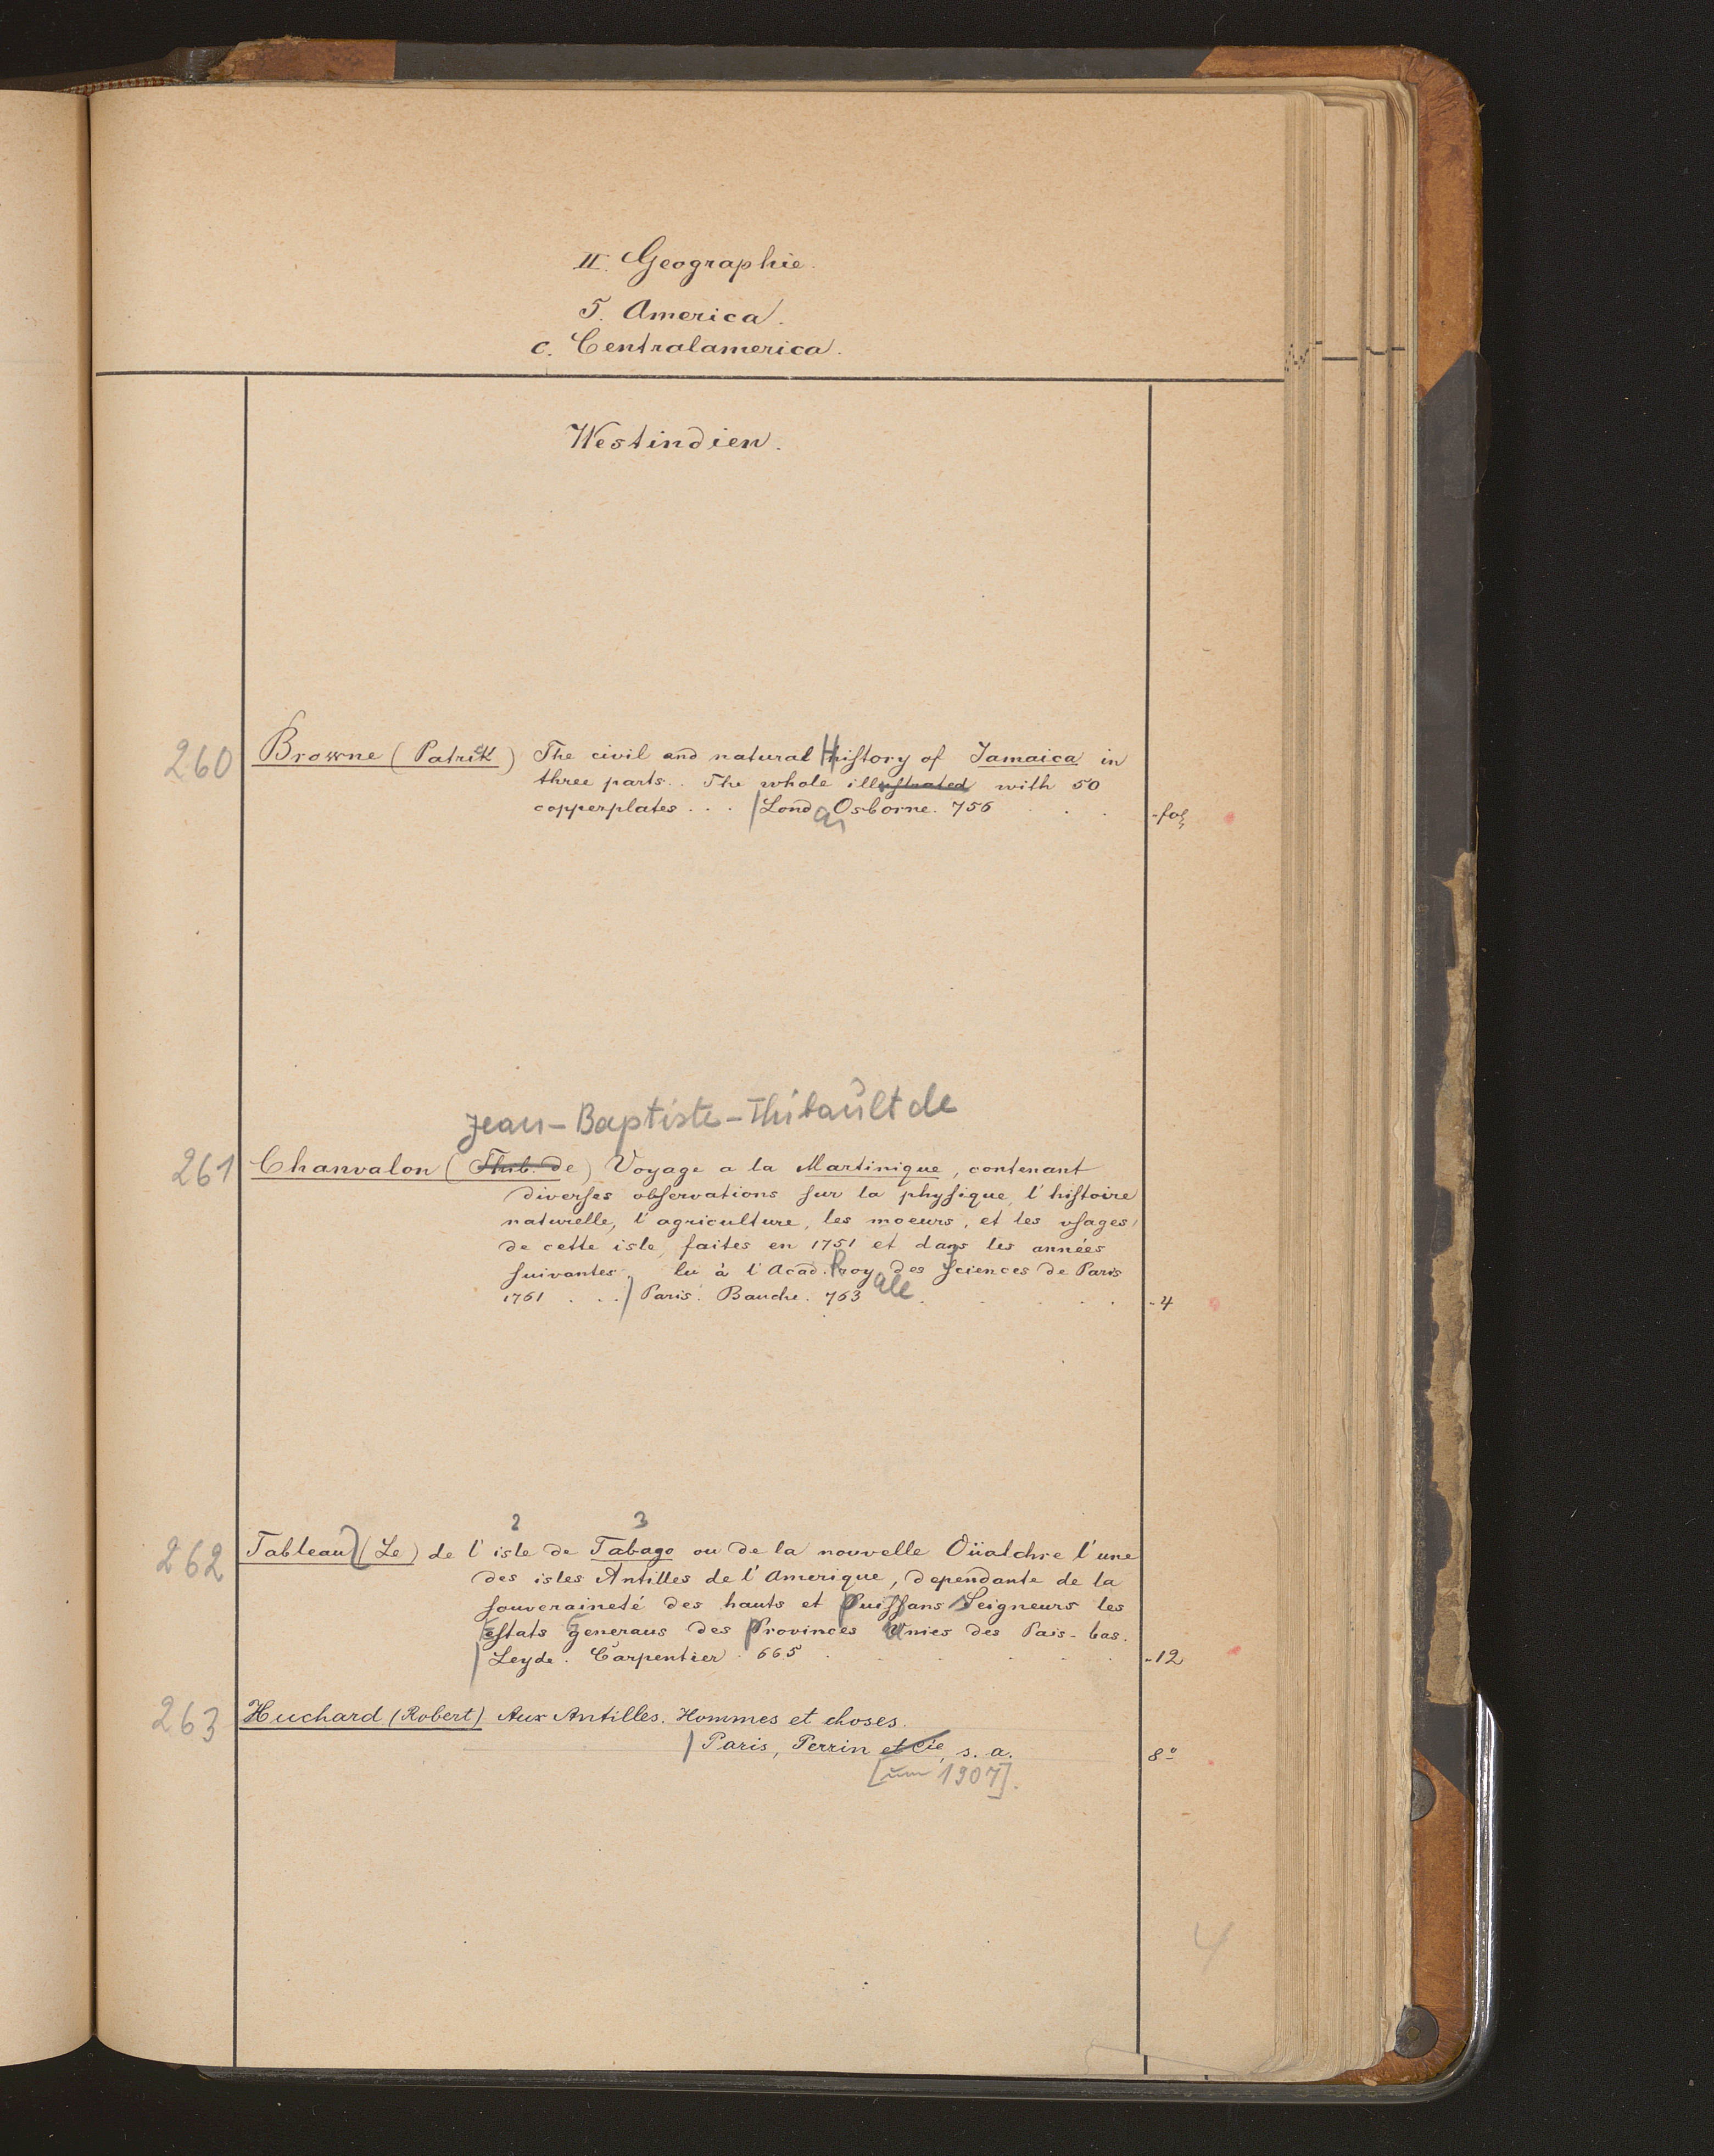 II. Geographie.
5. America.
c. Centralamerica.
Westindien.
260 Browne (Patrick) The civil and natural History of Jamaica in
three parts. . The whole illustrated with 50
copperplates . . . | Lond Osborne. 756 . . -fol
Jean-Baptiste-Thibault de
261 Chanvalon (Thib. de) Voyage a la Martinique, contenant
diverſes obſervations ſur la phyſique, l'hiſtoire
naturelle, l'agriculture, les moeurs, et les uſages
de cette isle, faites en 1751 et dans les années
ſuivantes. lu à l'Acad. Royale des Sciences de Paris
1761 . . . | Paris. Bauche. 763 . . . . -4
2 3
262 Tableau (Le) de l'isle de Tabago ou de la nouvelle Oüalchre l'une
des isles Antilles de l'Amerique, dependante de la
ſouveraineté des hauts et puiſſans Seigneurs les
eſtats generaus des provinces unies des Pais-bas.
| Leyde. Carpentier. 665 . . . . . -12
263 Huchard (Robert) Aux Antilles. Hommes et choses.
| Paris, Perrin et Cie, s. a. 8°
[um 1907].
4